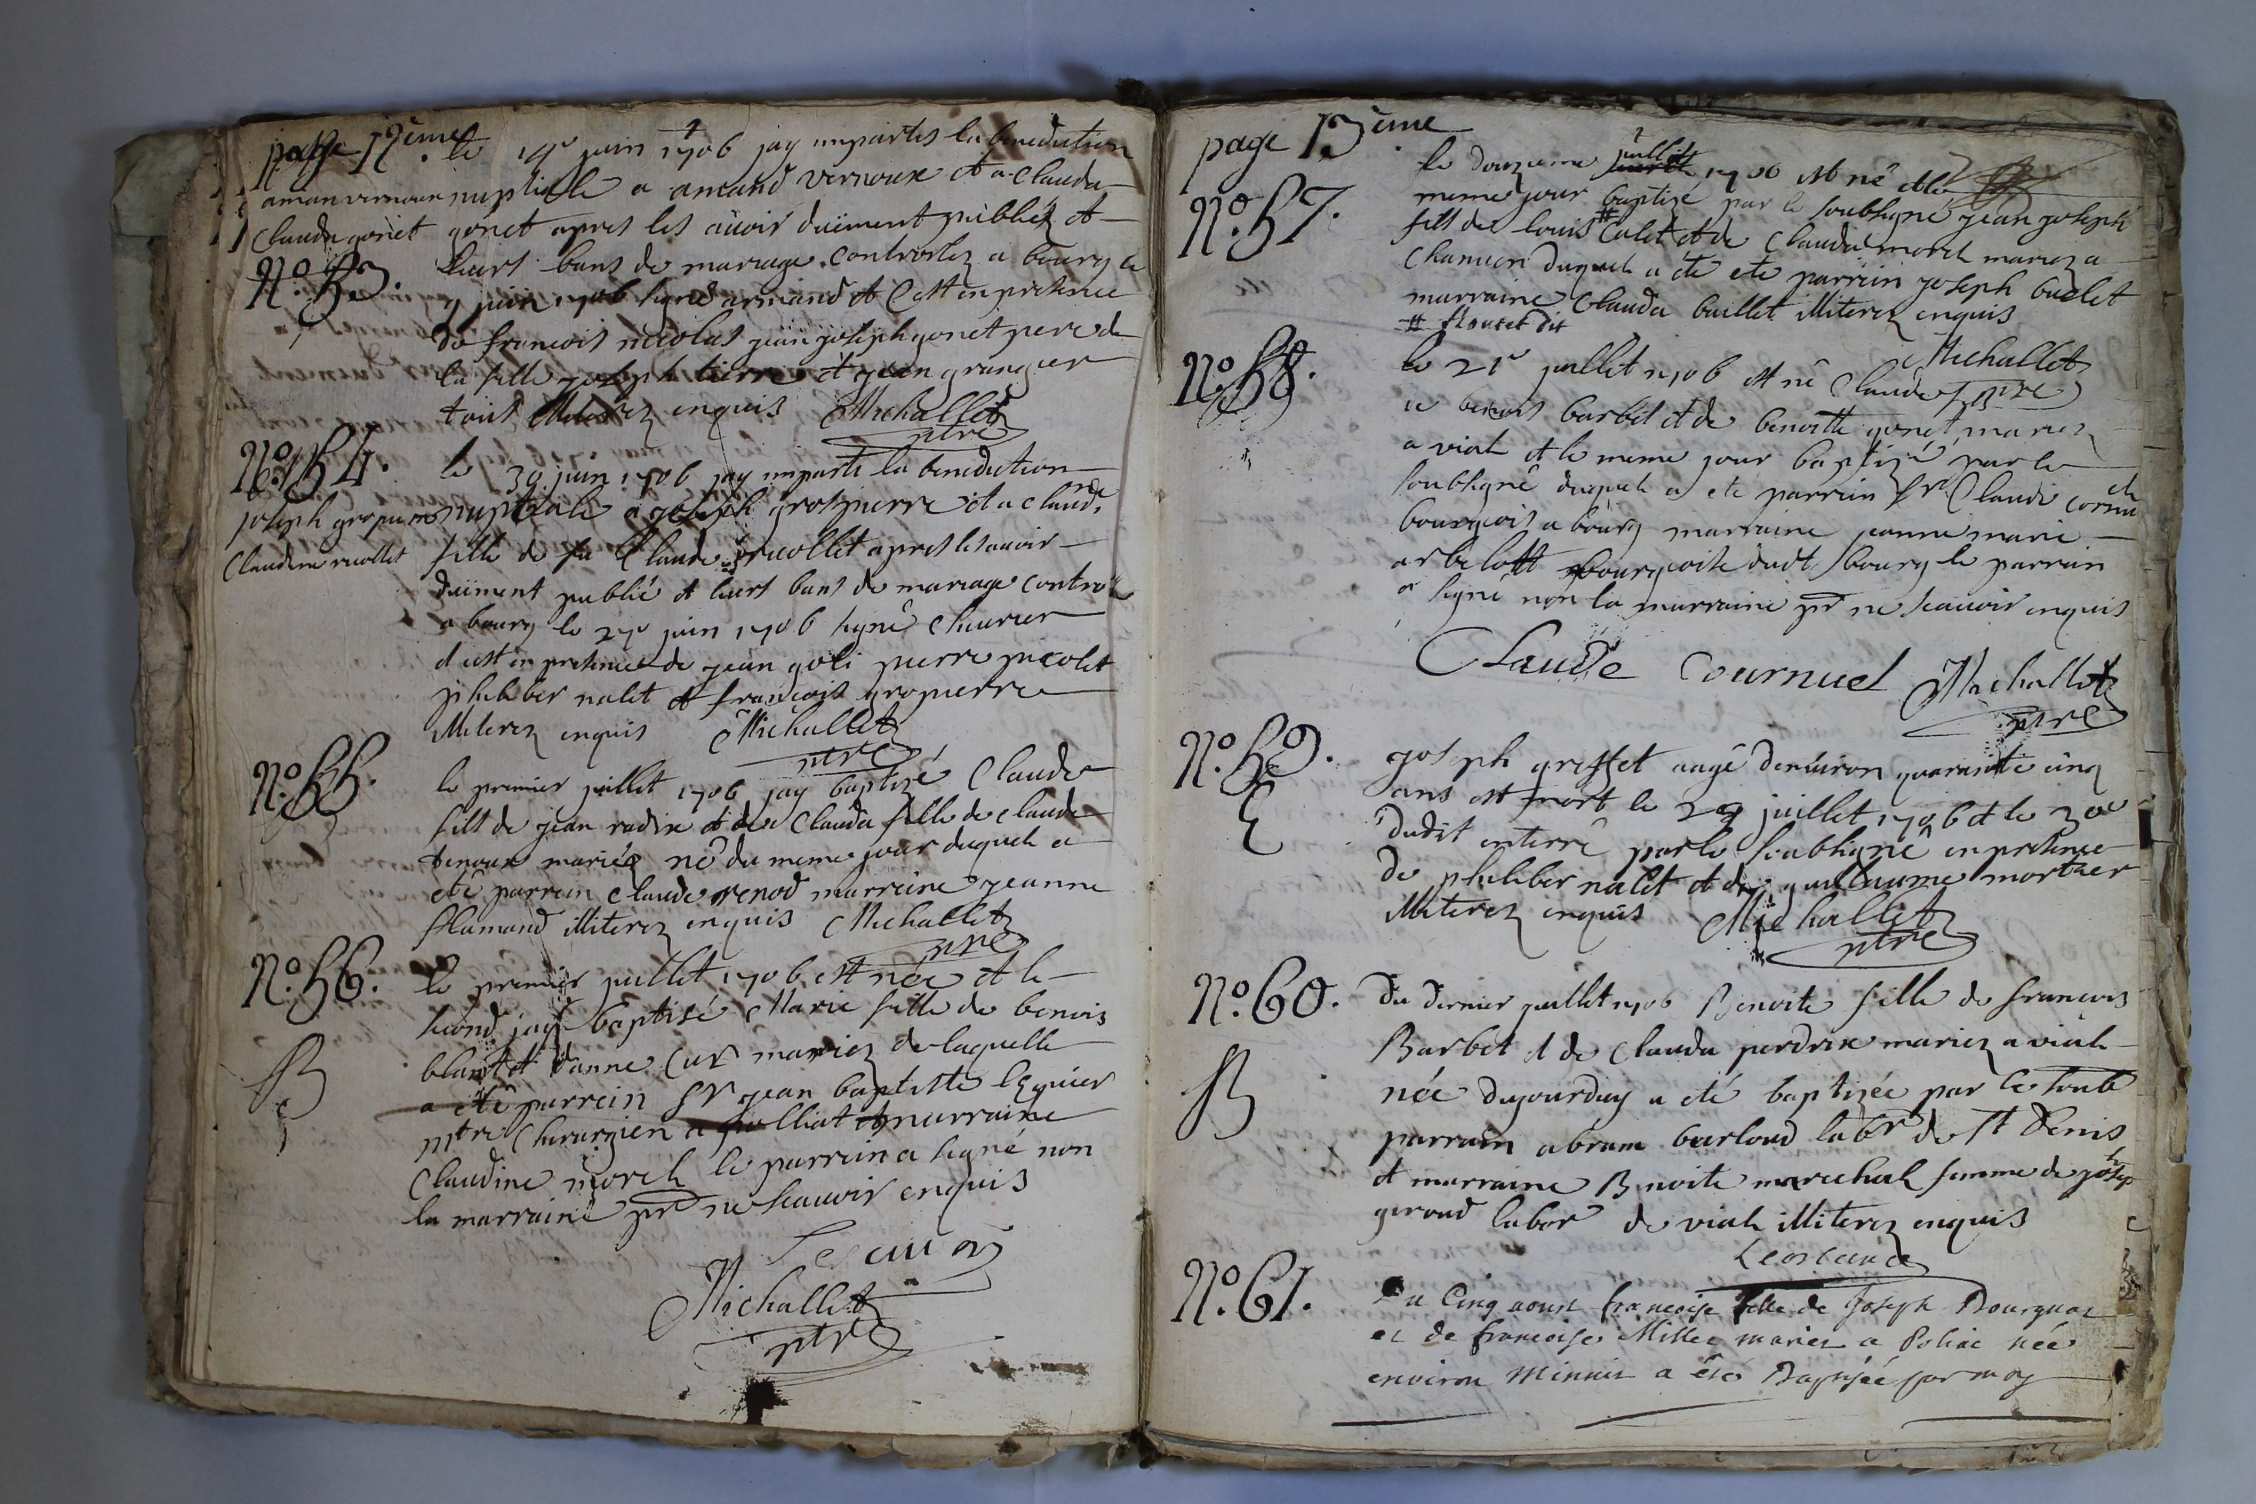 page 12ème
le 14e juin 1706 jay impartis la benediction
aman vernoux nuptiale a amand vernoux et a clauda
Clauda gonet gonet apres les auoir duëment publiéz et
N.o 53. leurs bans de mariage controslez a bourg le
9 juin 1706 signé armand et C'est en presence
de francois nicolas jean joseph gonet pere de
la fille joseph tierre et jean granger
tous illiterez enquis Michallet
ptre
N.o 54. le 30 juin 1706 jay imparti la benediction
joseph gropierre nuptiale a joseph grospierre et a claudine
Claudine nicollet fille de fu Claude nicollet apres les auoir
duëment publié et leurs bans de mariage controllé
a bourg le 27e juin 1706 signé Cheurier
et cest en presence de jean goli pierre nicolet
philiber nalet et francois gropierre
illiterez enquis Michallet
ptre
N.o 55. le premier juillet 1706 jay baptizé Claude
fils de jean radix et de Clauda fille de claude
tenoux mariéz né du meme jour duquel a
eté parrein claude renod marreine jeanne
flamand illiterez enquis Michallet
ptre
N.o 56. le premier juillet 1706 est née et le
second jay baptisé Marie fille de benois
B blanc et danne Cur mariez de laquelle
a été parrein Sr jean baptiste lequier
mtre Chirurgien a polliat et marraine
Claudine morel le parrein a signé non
la marraine pr ne scauoir enquis
Michallet
ptre
page 13ème
le douzieme juillet 1706 est né et le
N.o 57. meme jour baptizé par le soubsigné jean joseph
fils de louis # Calet et de Claudu morel mariez a
Chanuen duquel a été ete parrein joseph buelet
marraine Clauda baillet illiterez enquis
# floutet dit
Michallet
ptre
N.o 58. le 21e juillet 1706 est né Claude f
a benois barbet et de benoitte gonet mariez
a vial et le meme jour baptizé par le
soubsigné duquel a ete parrein sr Claude cornuel
bourgeois a bourg marraine jeanne marie
arbelott bourgeoise dudt bourg le parrain
a signé non la marraine pr ne scauoir enquis
Claude Cournuel Michallet
ptre
N.o 59. joseph greffet aagé denuiron quarante cinq
E ans est mort le 29 juillet 1706 et le 30e
dudit enterré par le soubsigné en presence
de philiber nalet et de guillaume mortier
illiterez enquis Michallet
ptre
N.o 60. du dernier juillet 1706 Benoite fille de francois
Barbet et de Clauda perdrix mariez a vial
B née dujourduy a eté baptizée par le soub
parrain abram burloud labr de st Denis
et marraine Benoite marechal femme de joseph
geroud labor de vial illiterez enquis
N.o 61. Du Cinq aoust francoise fille de Joseph Bourguat
et de francoise Millet mariez a Poliat née
environ Minuit a été Baptisée par moy